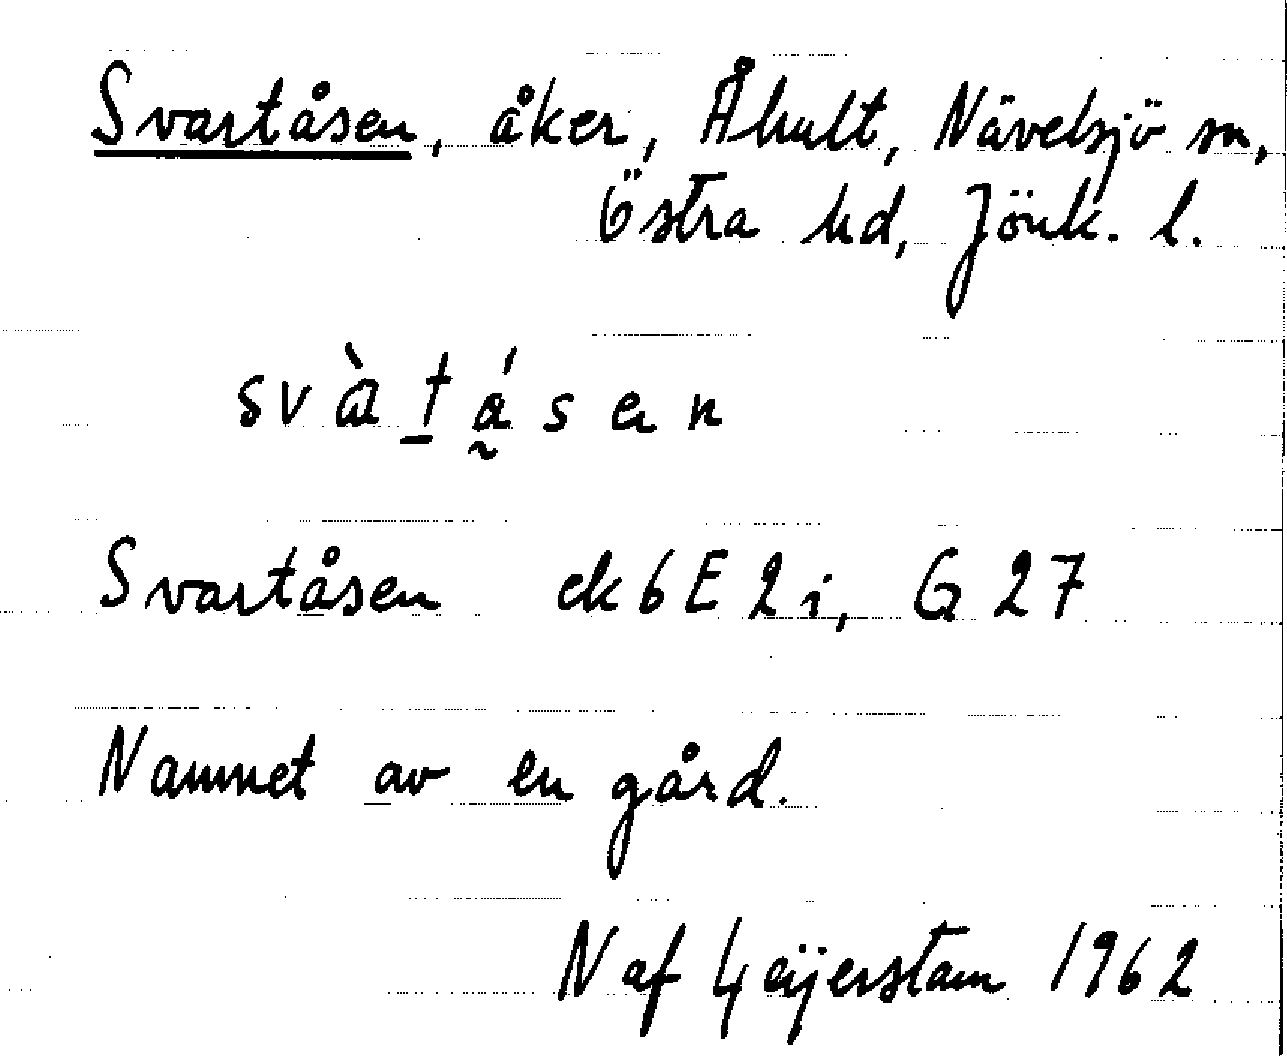 Svartåsen, åker, Åhult, Nävelsjö sn,
Östra hd, Jönk. l.
svàtásen
Svartåsen ek 6E 2i, G 27
Namnet av en gård.
N af Geijerstam 1962